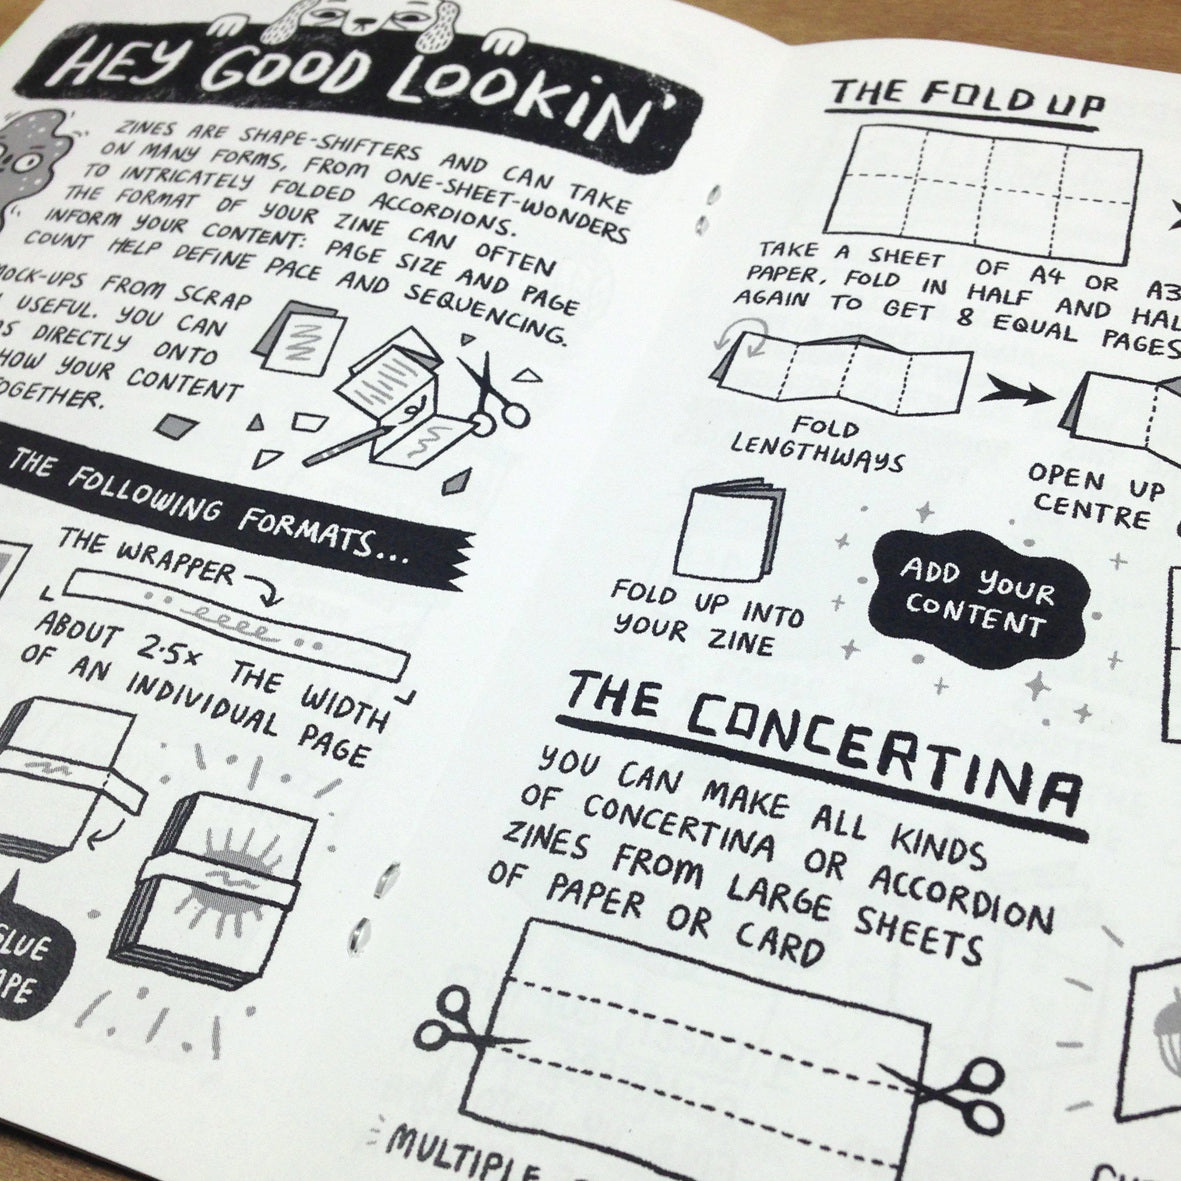 HEY GOOD LOOKIN'
ZINES ARE SHAPE-SHIFTERS AND CAN TAKE
ON MANY FORMS, FROM ONE-SHEET-WONDERS
TO INTRICATELY FOLDED ACCORDIONS.
THE FORMAT OF YOUR ZINE CAN OFTEN
INFORM YOUR CONTENT: PAGE SIZE AND PAGE
COUNT HELP DEFINE PACE AND SEQUENCING.
MOCK-UPS FROM SCRAP
USEFUL. YOU CAN
DIRECTLY ONTO
HOW YOUR CONTENT
TOGETHER.
THE FOLLOWING FORMATS...
THE WRAPPER
ABOUT 2.5x THE WIDTH
OF AN INDIVIDUAL PAGE
GLUE
THE FOLD UP
TAKE A SHEET OF A4 OR A3
PAPER, FOLD IN HALF AND HALF
AGAIN TO GET 8 EQUAL PAGES
FOLD
LENGTHWAYS
OPEN UP
CENTRE
FOLD UP INTO
YOUR ZINE
ADD YOUR
CONTENT
THE CONCERTINA
YOU CAN MAKE ALL KINDS
OF CONCERTINA OR ACCORDION
ZINES FROM LARGE SHEETS
OF PAPER OR CARD
MULTIPLE